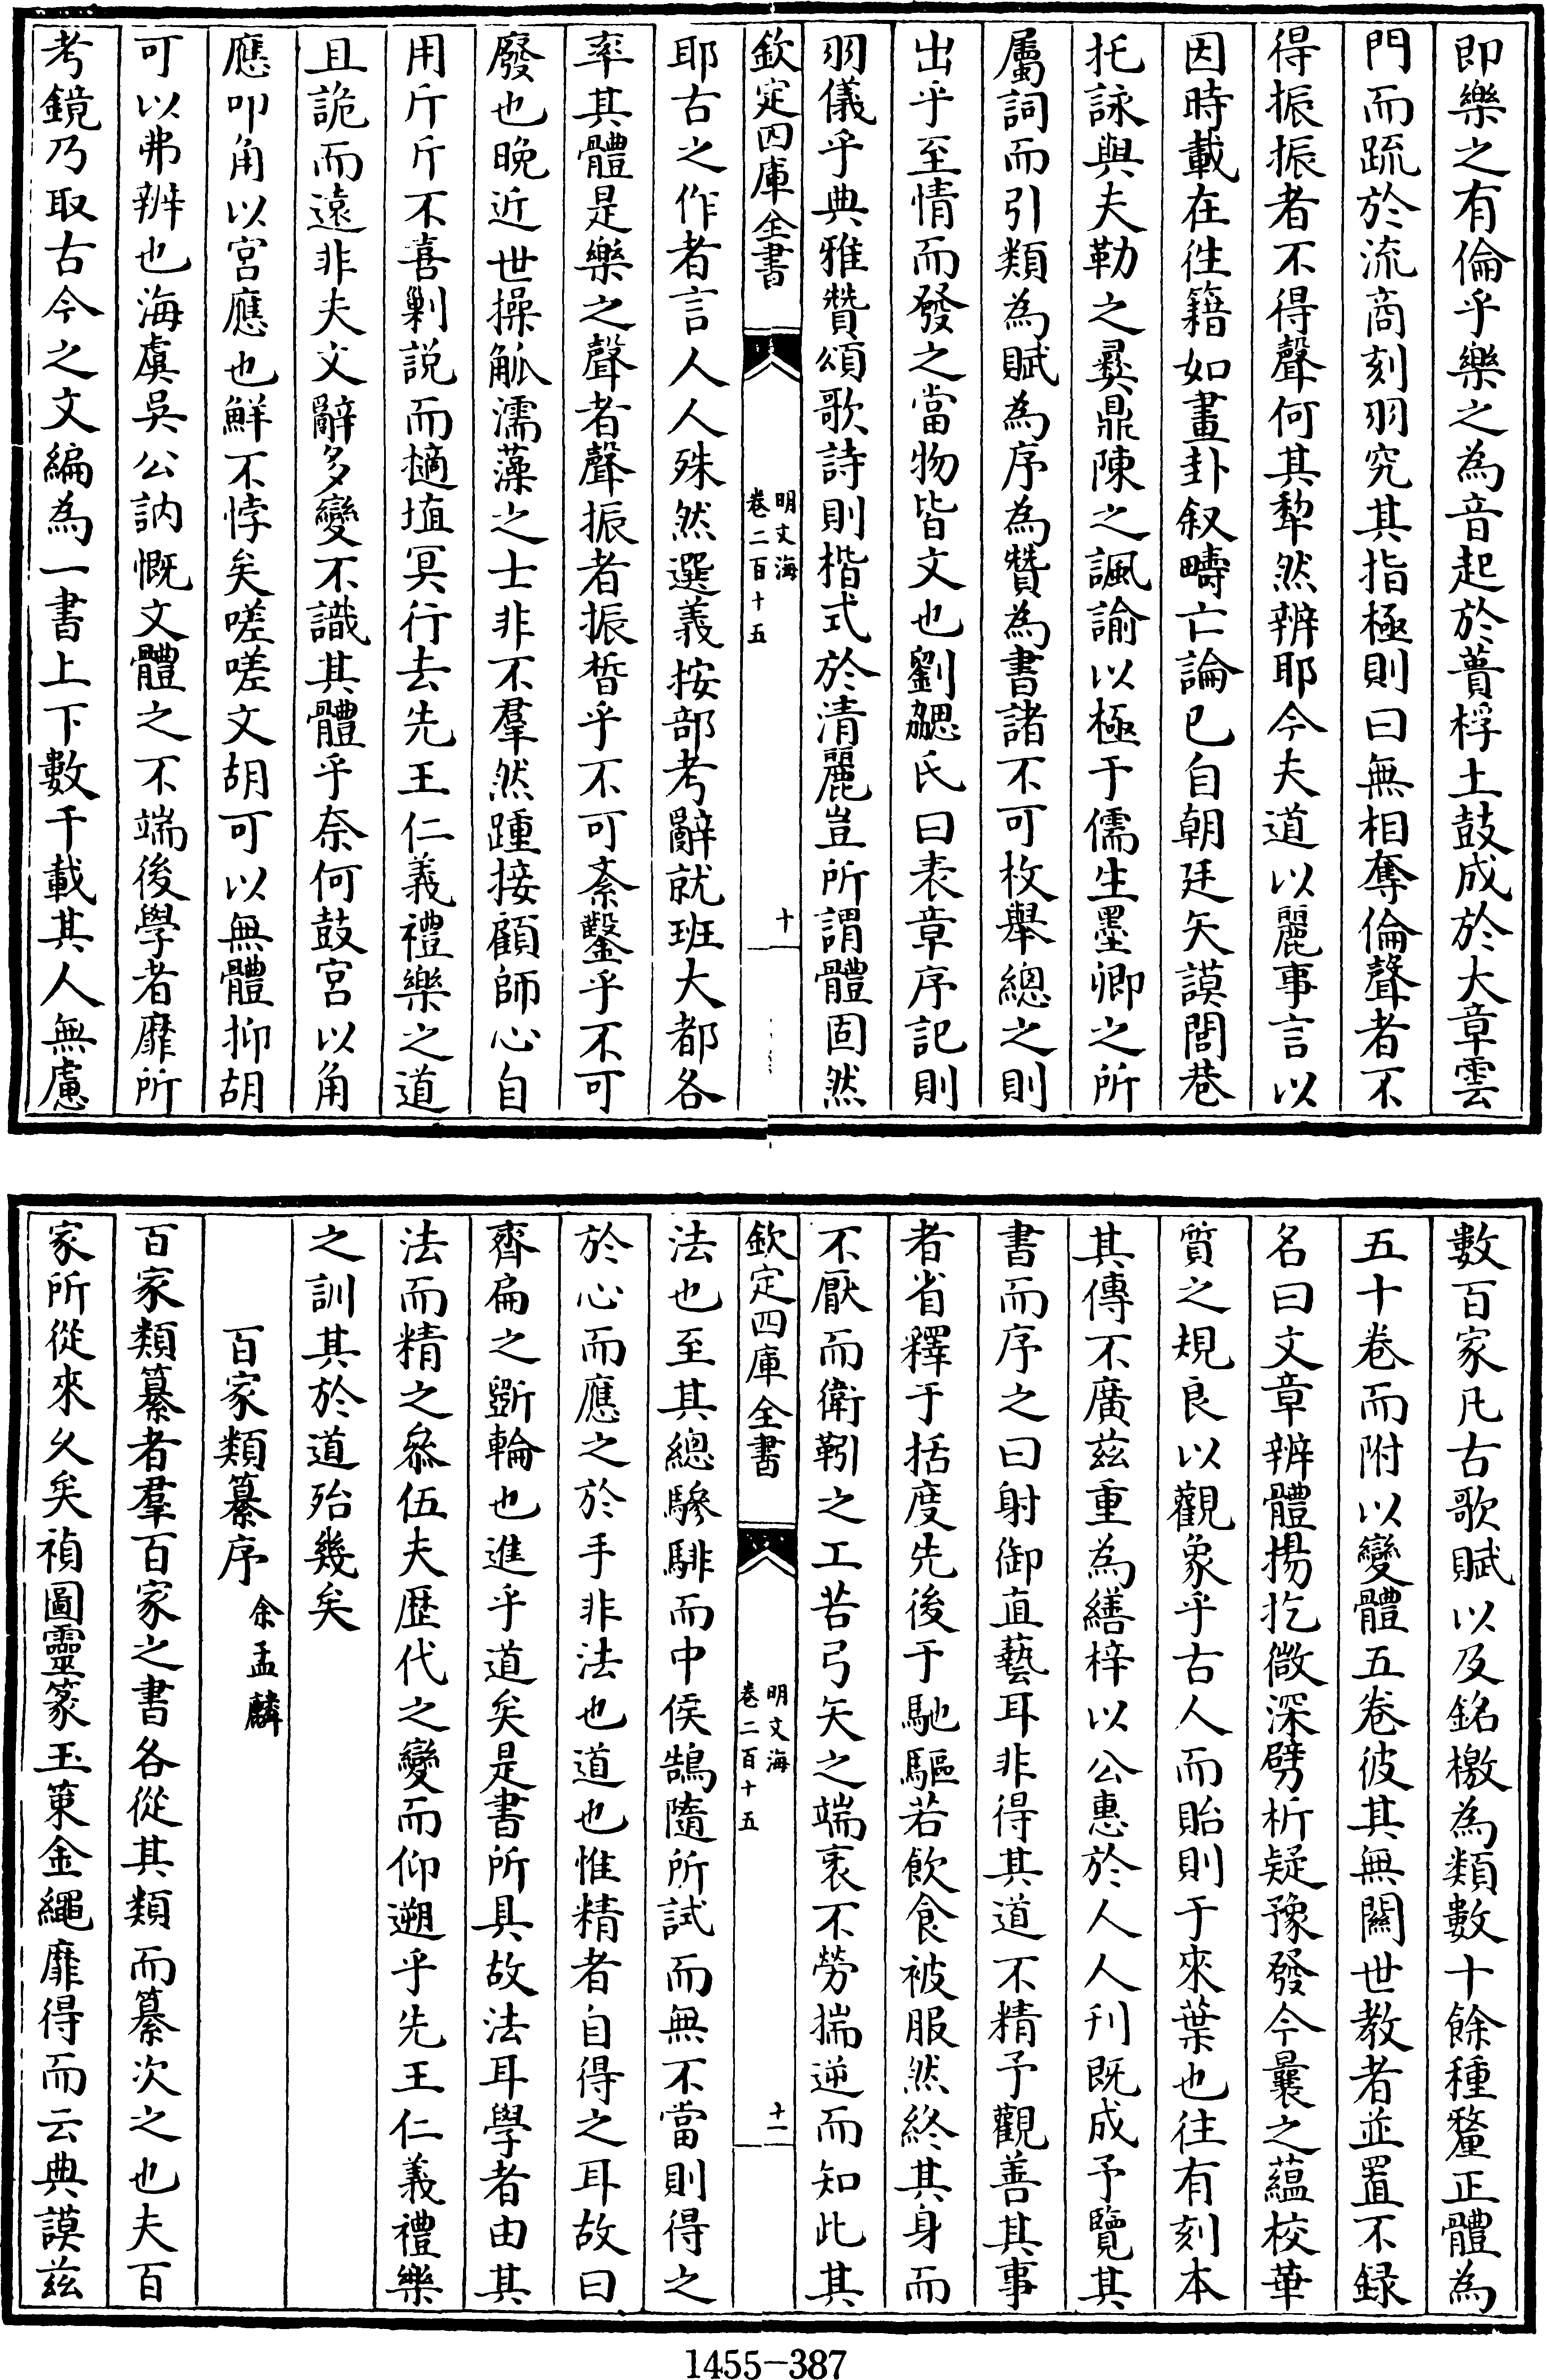 即樂之有倫乎樂之為音起於蕢桴土鼓成於大章雲
門而疏於流商刻羽究其指極則曰無相奪倫聲者不
得振振者不得聲何其犂然辨耶今夫道以麗事言以
因時載在徃籍如畫卦叙疇亡論已自朝廷矢謨閭巷
托詠與夫勒之彞鼎陳之諷諭以極于儒生墨卿之所
屬詞而引類為賦為序為贊為書諸不可枚舉總之則
出乎至情而發之當物皆文也劉勰氏曰表章序記則
羽儀乎典雅贊頌歌詩則楷式於清麗豈所謂體固然
欽定四庫全書
明文海
卷二百十五
十
耶古之作者言人人殊然選義按部考辭就班大都各
率其體是樂之聲者聲振者振晳乎不可紊鑿乎不可
廢也晚近世操觚濡藻之士非不羣然踵接顧師心自
用斤斤不喜剿說而擿埴冥行去先王仁義禮樂之道
且詭而遠非夫文辭多變不識其體乎奈何鼓宮以角
應叩角以宮應也鮮不悖矣嗟嗟文胡可以無體抑胡
可以弗辨也海虞吳公訥慨文體之不端後學者靡所
考鏡乃取古今之文編為一書上下數千載其人無慮
數百家凡古歌賦以及銘檄為類數十餘種釐正體為
五十卷而附以變體五卷彼其無關世教者並置不録
名曰文章辨體揚扢微深劈析疑豫發今曩之蘊校華
質之規良以觀象乎古人而貽則于來葉也往有刻本
其傳不廣茲重為繕梓以公惠於人人刊既成予覽其
書而序之曰射御直藝耳非得其道不精予觀善其事
者省釋于括度先後于馳驅若飲食被服然終其身而
不厭而衛靷之工若弓矢之端衷不勞揣逆而知此其
欽定四庫全書
明文海
卷二百十五
十一
法也至其總驂騑而中侯鵠隨所試而無不當則得之
於心而應之於手非法也道也惟精者自得之耳故曰
齊扁之斲輪也進乎道矣是書所具故法耳學者由其
法而精之叅伍夫歴代之變而仰遡乎先王仁義禮樂
之訓其於道殆幾矣
百家類纂序余孟麟
百家類纂者羣百家之書各從其類而纂次之也夫百
家所從來久矣禎圖靈篆玉策金繩靡得而云典謨茲
1455-387